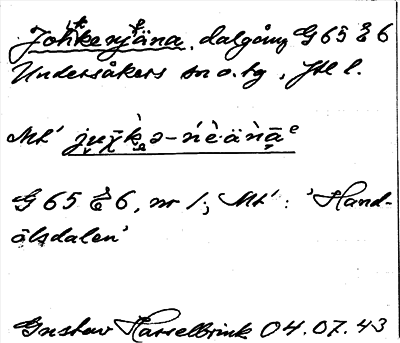 Johkenjäna, dalgång G 65 Æ 6
Undersåkers sn o. tg, Jtl l.
Mt'
G 65 Æ 6, nr 1; Mt': 'Hand-
ölsdalen'
Gustav Hasselbrink 04.07.43